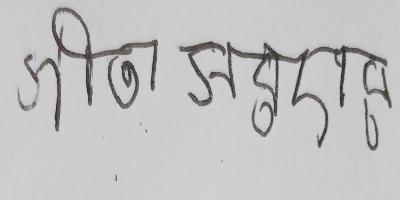 গীতা সরদার